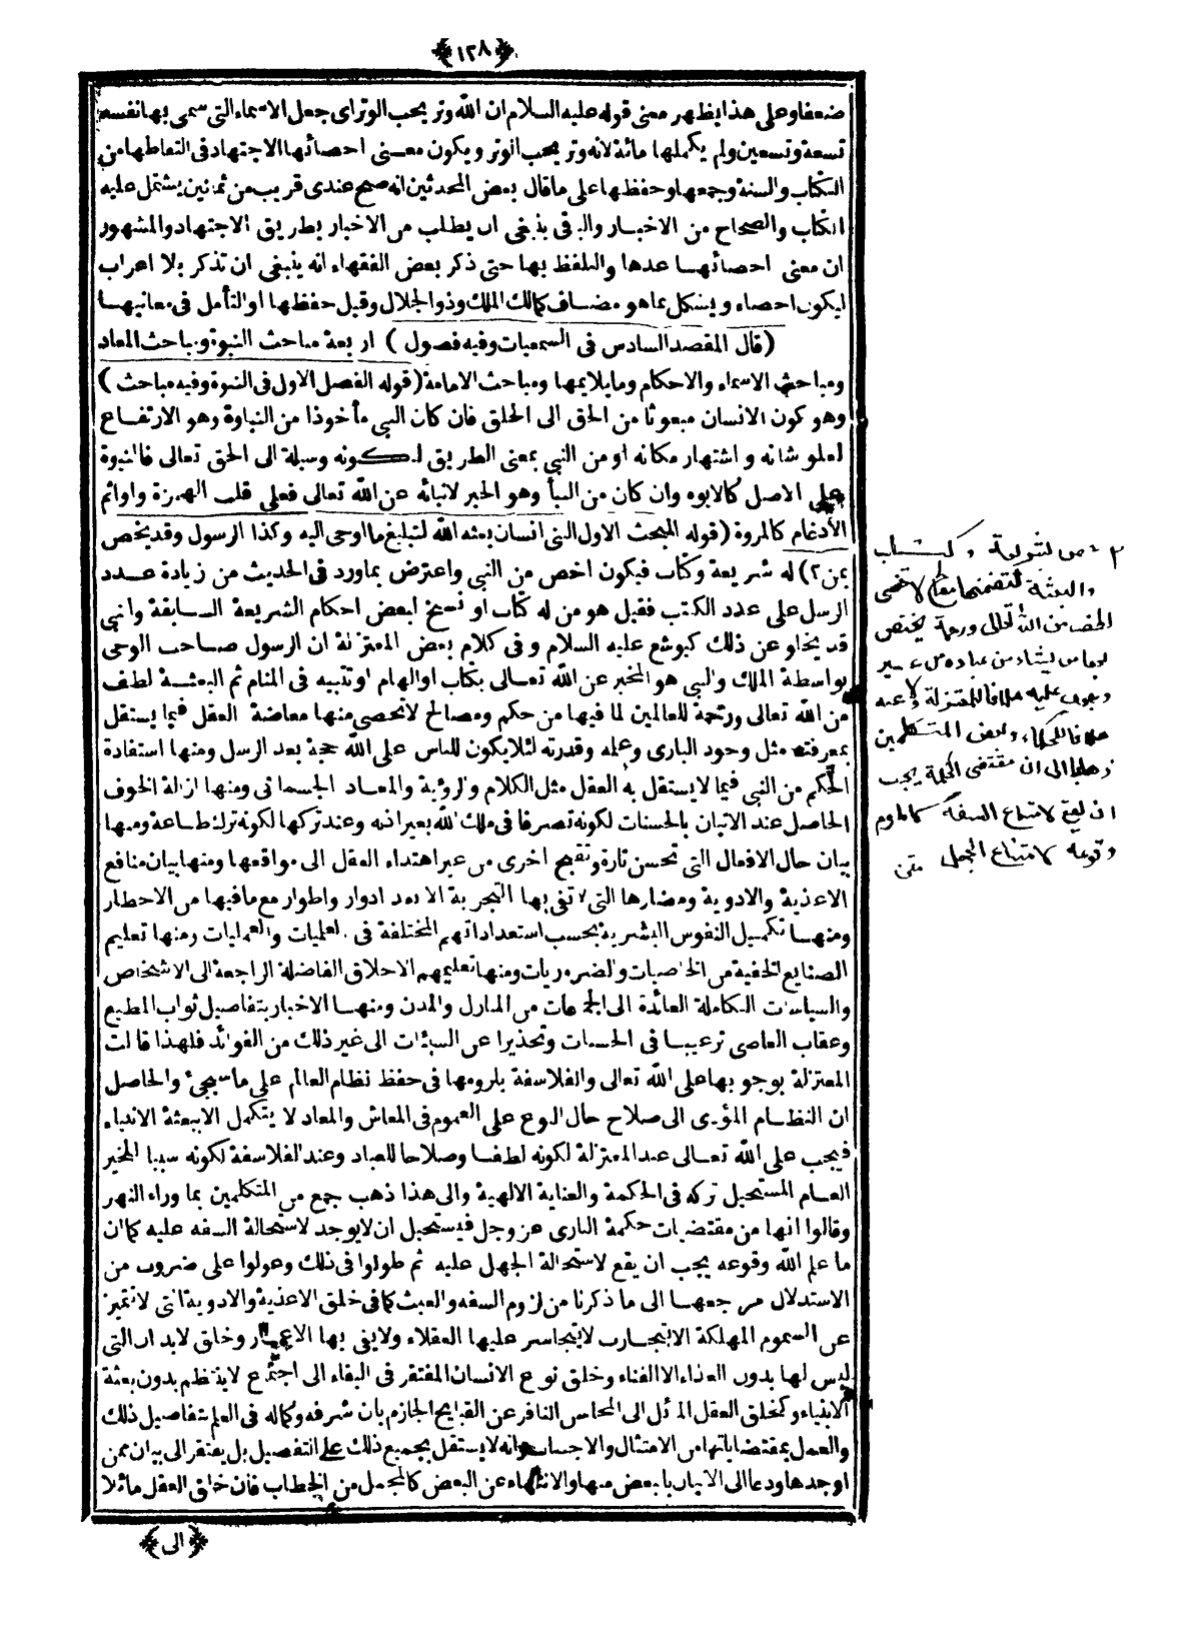 ﴿١٢٨﴾
ضعفا وعلى هذا يظهر معنى قوله عليه السلام ان الله وتر يحب الوتر اى جعل الاسماء التى سمى بها نفسه
تسعة وتسعين ولم يكملها مائة لانه وتر يحب الوتر ويكون معنى احصائها الاجتهاد فى التقاطها من
الكتاب والسنة وجمعها وحفظها على ما قال بعض المحدثين انه صح عندى قريب من ثمانين يشتمل عليه
الكتاب والصحاح من الاخبار والباقى ينبغى ان يطلب من الاخبار بطريق الاجتهاد والمشهور
ان معنى احصائها عدها والتلفظ بها حتى ذكر بعض الفقهاء انه ينبغى ان تذكر بلا اعراب
ليكون احصاء ويشكل بما هو مضاف كمالك الملك وذو الجلال وقيل حفظها او التأمل فى معانيها
(قال المقصد السادس فى السمعيات وفيه فصول) اربعة مباحث النبوة ومباحث المعاد
ومباحث الاسماء والاحكام وما يلايمها ومباحث الامامة (قوله الفصل الاول فى النبوة وفيه مباحث)
وهو كون الانسان مبعوثا من الحق الى الخلق فان كان النبى مأخوذا من النباوة وهو الارتفاع
لعلو شانه واشتهار مكانه او من النبى بمعنى الطريق لكونه وسيلة الى الحق تعالى فالنبوة
على الاصل كالابوه وان كان من النبأ وهو الخبر لانبائه عن الله تعالى فعلى قلب الهمزة واوا ثم
الادغام كالمروة (قوله المبحث الاول النبى انسان بعثه الله لتبليغ ما اوحى اليه وكذا الرسول وقد يخص
بمن ٢) له شريعة وكتاب فيكون اخص من النبى واعترض بما ورد فى الحديث من زيادة عدد
الرسل على عدد الكتب فقيل هو من له كتاب او نسخ لبعض احكام الشريعة السابقة والنبى
قد يخلو عن ذلك كيوشع عليه السلام وفى كلام بعض المعتزلة ان الرسول صاحب الوحى
بواسطة الملك والنبى هو المخبر عن الله تعالى بكتاب او الهام او تنبيه فى المنام ثم البعثة لطف
من الله تعالى ورحمة للعالمين لما فيها من حكم ومصالح لا تحصى منها معاضدة العقل فيما يستقل
بمعرفته مثل وجود البارى وعلمه وقدرته لئلا يكون للناس على الله حجة بعد الرسل ومنها استفادة
الحكم من النبى فيما لا يستقل به العقل مثل الكلام والرؤية والمعاد الجسمانى ومنها ازالة الخوف
الحاصل عند الاتيان بالحسنات لكونه تصرفا فى ملك الله بغير اذنه وعند تركها لكونه ترك طاعة ومنها
بيان حال الافعال التى تحسن تارة وتقبح اخرى من غير اهتداء العقل الى مواقعها ومنها بيان منافع
الاغذية والادوية ومضارها التى لا تفى بها التجربة الا بعد ادوار واطوار مع ما فيها من الاخطار
ومنها تكميل النفوس البشرية بحسب استعداداتهم المختلفة فى العلميات والعمليات ومنها تعليم
الصنايع الخفية من الحاجيات والضروريات ومنها تعليمهم الاخلاق الفاضلة الراجعة الى الاشخاص
والسياسات الكاملة العائدة الى الجماعات من المنازل والمدن ومنها الاخبار بتفاصيل ثواب المطيع
وعقاب العاصى ترغيبا فى الحسنات وتحذيرا عن السيئات الى غير ذلك من الفوائد فلهذا قالت
المعتزلة بوجوبها على الله تعالى والفلاسفة بلزومها فى حفظ نظام العالم على ما سيجئ والحاصل
ان النظام المؤدى الى صلاح حال النوع على العموم فى المعاش والمعاد لا يتكمل الا ببعثة الانبياء
فيجب على الله تعالى عند المعتزلة لكونه لطفا وصلاحا للعباد وعند الفلاسفة لكونه سببا للخير
العام المستحيل تركه فى الحكمة والعناية الالهية والى هذا ذهب جمع من المتكلمين بما وراء النهر
وقالوا انها من مقتضيات حكمة البارى عز وجل فيستحيل ان لا يوجد لاستحالة السفه عليه كما ان
ما علم الله وقوعه يجب ان يقع لاستحالة الجهل عليه ثم طولوا فى ذلك وعولوا على ضروب من
الاستدلال مرجعها الى ما ذكرنا من لزوم السفه والعبث كما فى خلق الاغذية والادوية التى لا تتميز
عن السموم المهلكة الا بتجارب لا يتجاسر عليها العقلاء ولا يفى بها الاعمار وخلق الابدان التى
ليس لها بدون الغذاء الا الفناء وخلق نوع الانسان المفتقر فى البقاء الى اجتماع لا ينتظم بدون بعثة
الانبياء وكخلق العقل المائل الى المحاسن النافر عن القبايح الجازم بان شرفه وكماله فى العلم بتفاصيل ذلك
والعمل بمقتضياتها من الامتثال والاجتناب وانه لا يستقل بجميع ذلك على التفصيل بل يفتقر الى بيان ممن
اوجدها ودعا الى الاتيان بالبعض منها والانتهاء عن البعض كالمجمل من الخطاب فان خلق العقل مائلا
﴿الى﴾
٢ خص بشريعة وكتاب
والبعثة لتضمنها مصالح لا تحصى
لطف من الله تعالى ورحمة يختص
بها من يشاء من عباده من غير
وجوب عليه خلافا للمعتزلة ولا عنه
خلافا للحكماء وبعض المتكلمين
ذهابا الى ان مقتضى الحكمة يجب
ان يقع لامتناع السفه كالمعلوم
وقوعه لامتناع الجهل متن